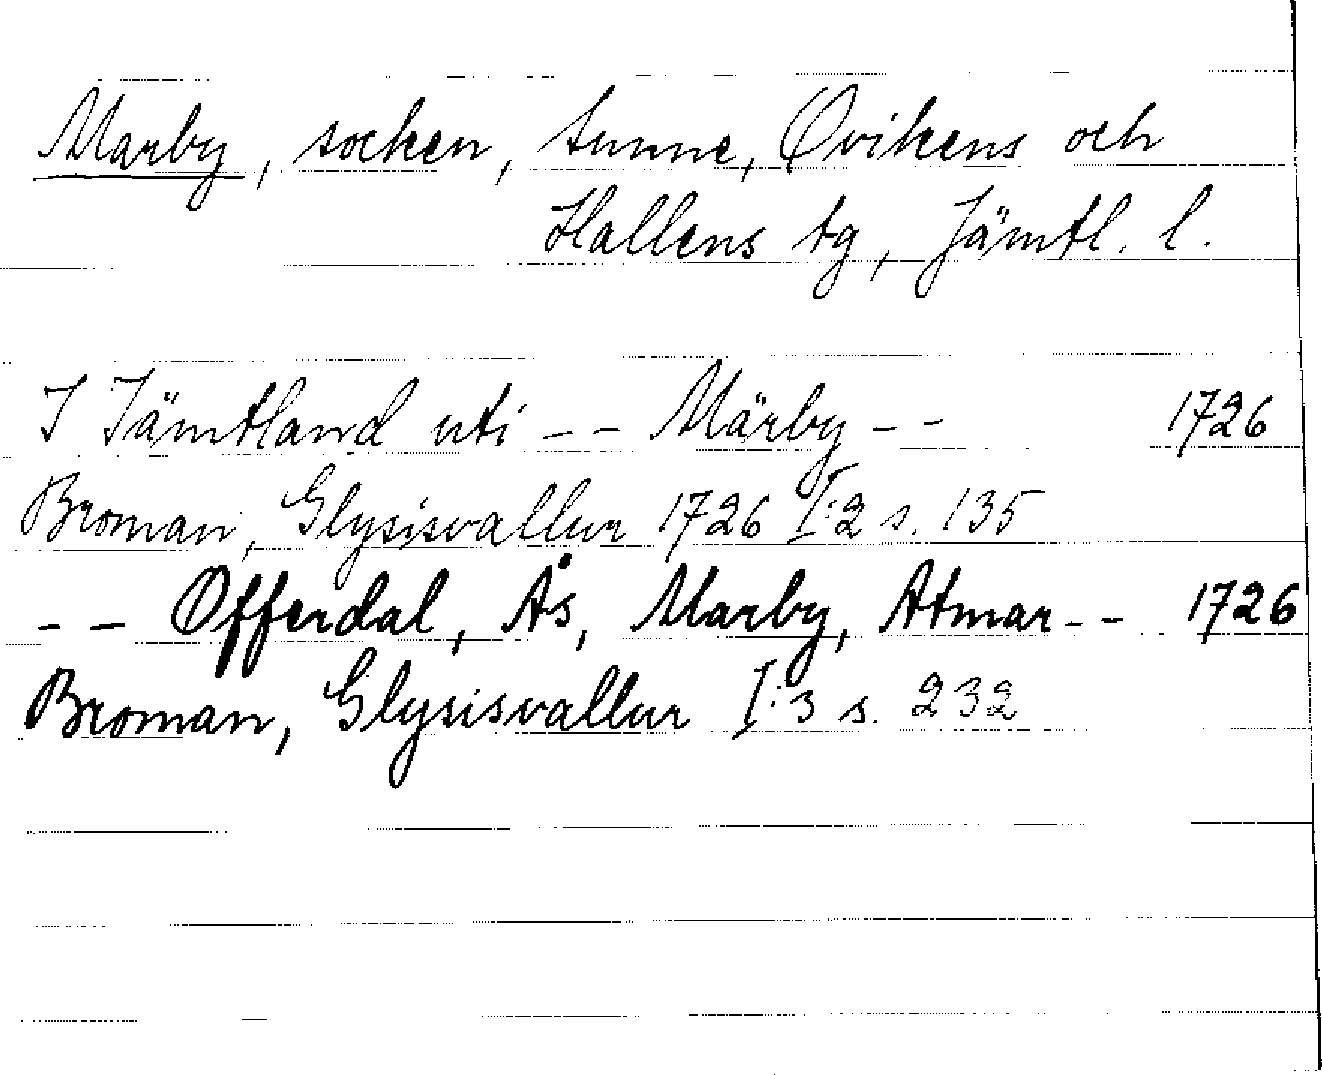 Marby, socken, Sunne, Ovikens och
Hallens tg, Jämtl. l.
I Jämtland uti -- Märby -- 1726
Broman, Glysisvallur 1726 I:2 s. 135
-- Offerdal, Ås, Marby, Atmar -- 1726
Broman, Glysisvallur I:3 s. 232